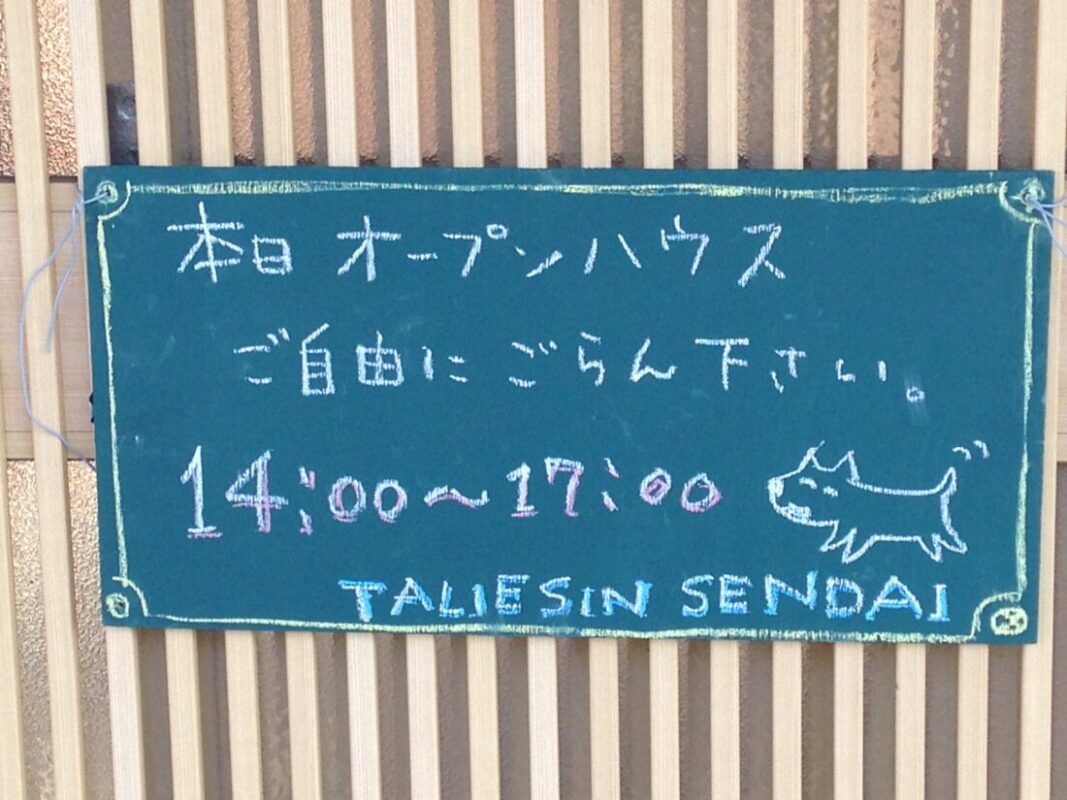 本日 オープンハウス
ご自由に ごらん下さい。
14:00〜17:00
TALIESIN SENDAI